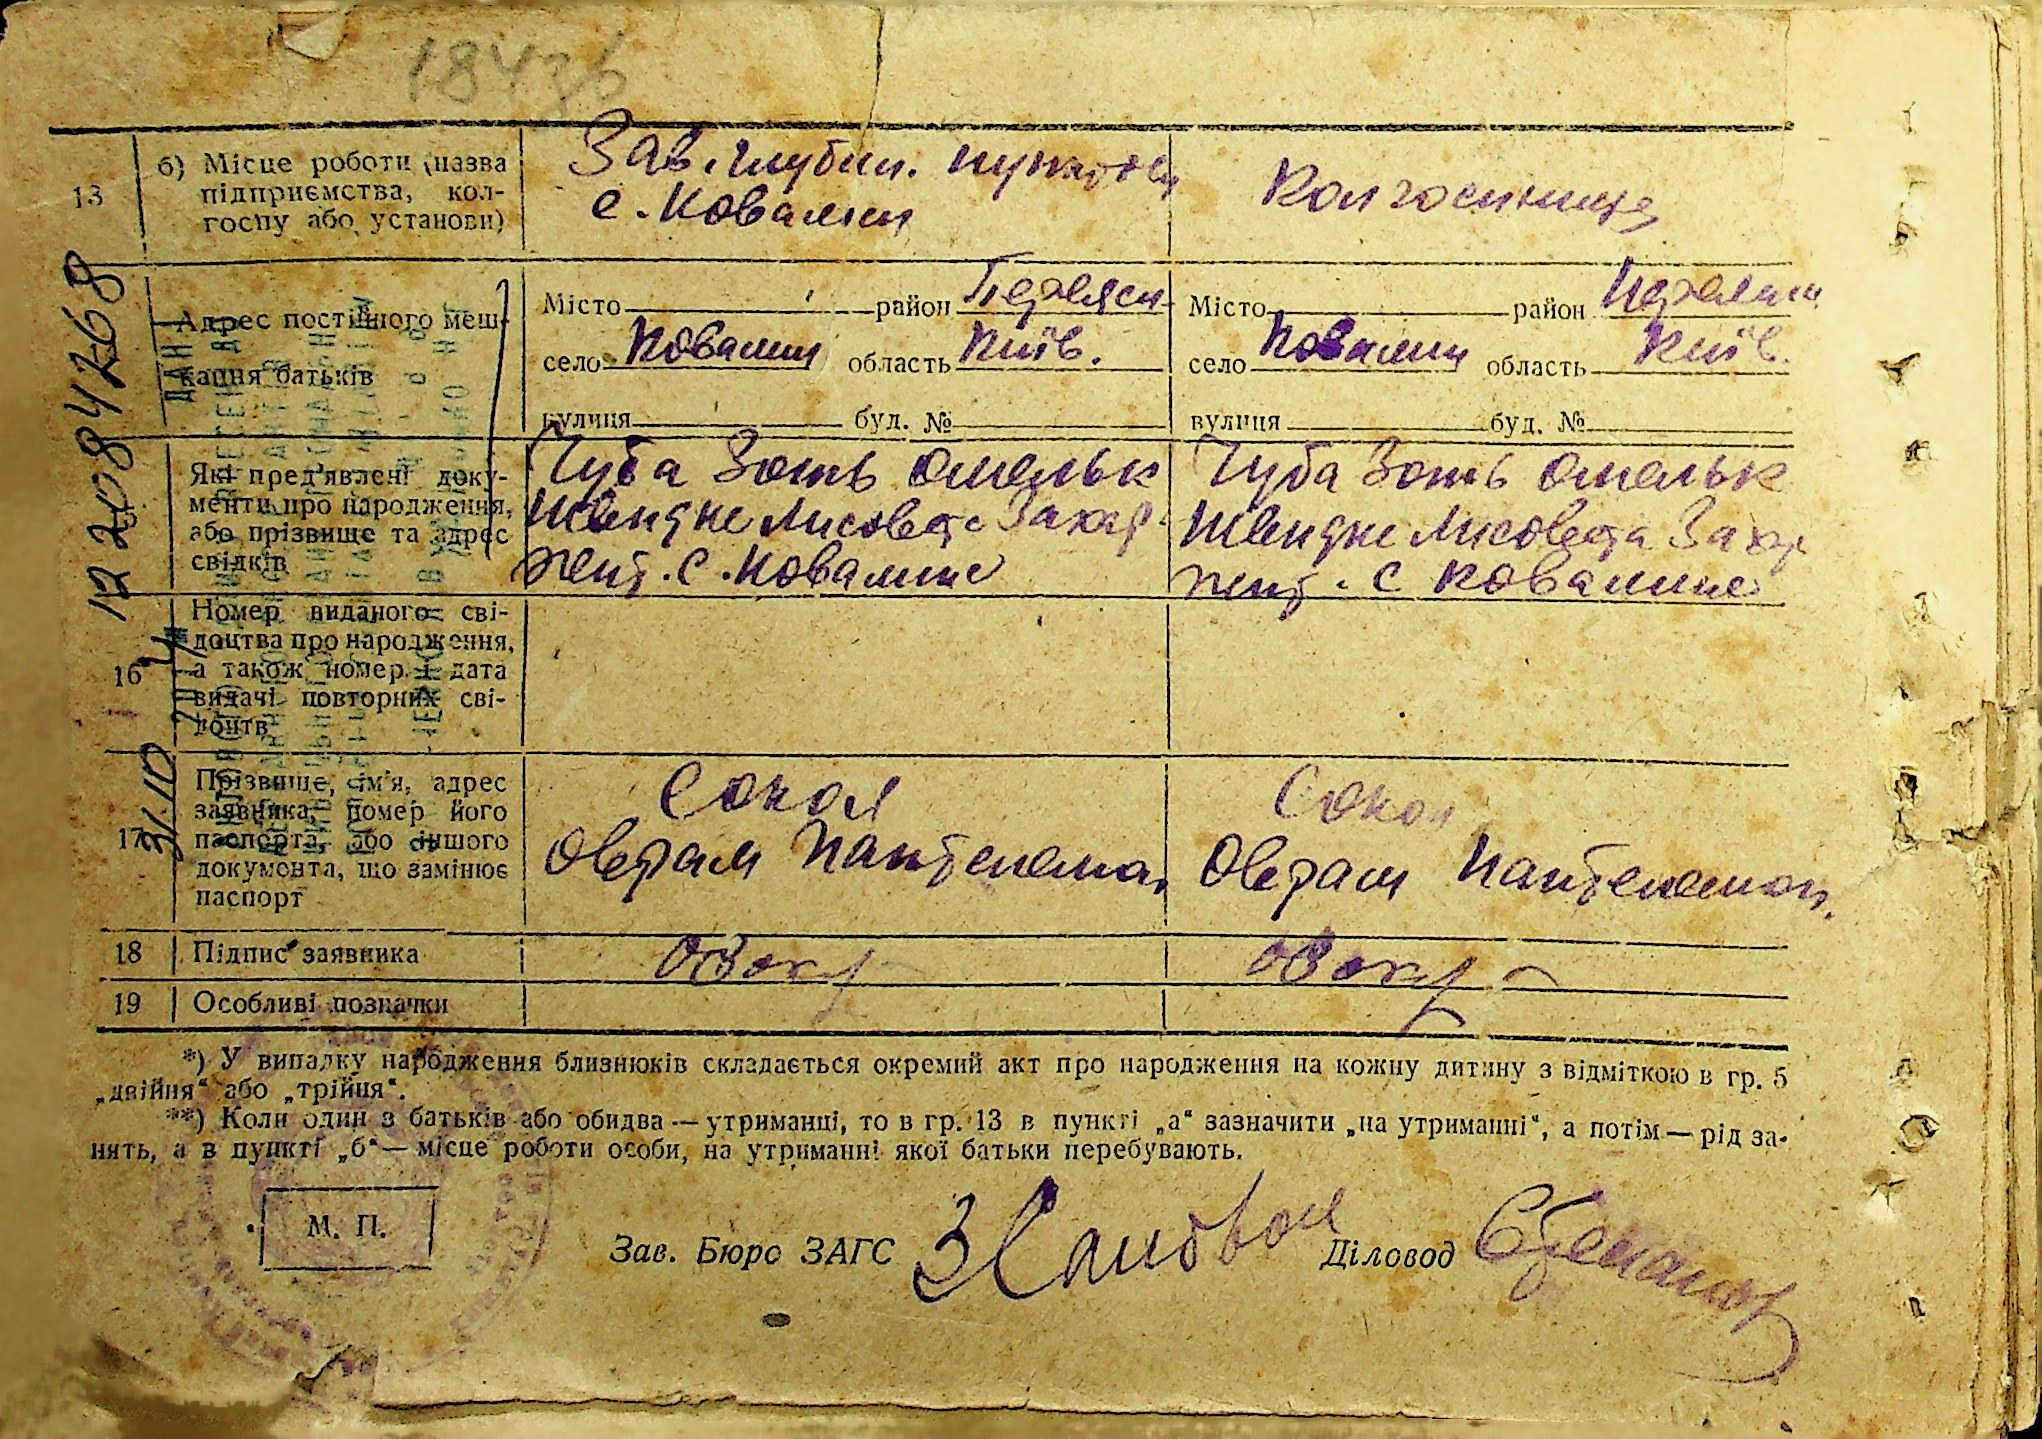 13
б) Місце роботи (назва
підприємства, кол-
госпу або установи)
Зав. глубин. пунктом
с. Ковалин
Колгоспниця
Адрес постійного меш-
кання батьків
Місто район Переясл.
село Ковалин область Київ.
вулиця буд. №
Місто район Переясл
село Ковалин область Київ.
вулиця буд. №
Які пред'явлені доку-
менти про народження,
або прізвище та адрес
свідків
Чуба Зоть Омельк
Лисовета Захар.
с. Ковалине
Чуба Зоть Омельк
Лисовета Захар
с Ковалине
16
Номер виданого сві-
доцтва про народження,
а також номер і дата
видачі повторних сві-
доцтв
17
Прізвище, ім'я, адрес
заявника, номер його
паспорта, або іншого
документа, що замінює
паспорт
Сокол
Оврам Пантелемон.
Сокол
Оврам Пантелемон.
18 Підпис заявника
19 Особливі позначки
12 2084268
31.10
*) У випадку народження близнюків складається окремий акт про народження на кожну дитину з відміткою в гр. 5
„двійня“ або „трійня“.
**) Коли один з батьків або обидва — утриманці, то в гр. 13 в пункті „а“ зазначити „на утриманні“, а потім — рід за-
нять, а в пункті „б“ — місце роботи особи, на утриманні якої батьки перебувають.
М. П.
Зав. Бюро ЗАГС Діловод